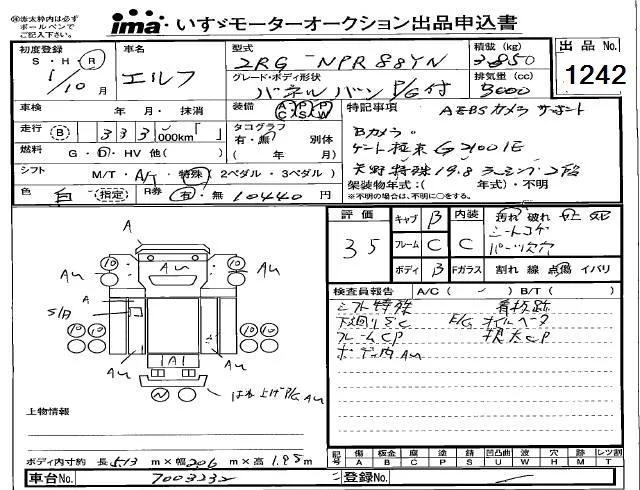 ㊟赤太枠内は必ず
ボールペンで
ご記入下さい。
ima いすゞモーターオークション出品申込書
初度登録 車名 型式 積載 (kg) 出品 No.
S・H・R エルフ 2RG-NPR88YN 3850
1/10月 グレード・ボディ形状 排気量 (cc) 1242
パネルバン P/G付 3000
車検 年 月・ 抹消 装備 AC PS PW 特記事項 AEBSカメラ サポート
走行 B 333,000km「 」 タコグラフ 有・無 別体 Bカメラ。
燃料 G・D・HV 他( ) ( 年 ) ゲート極東 G21001E
シフト M/T・A/T・特殊 ( 2ペダル・3ペダル ) 矢野特殊 19.8 2段
架装物年式:( 年式)・不明
色 白 指定 R券 有・無 10440円 ※不明の場合は、不明に○をする。
評価 キャブ B 内装 汚れ 破れ
35 フレーム C C シートコゲ
パーツ欠穴
ボディ B Fガラス 割れ 線 点傷 イバリ
A
10 10 Au Au Au
検査員報告 A/C( - ) B/T( )
シフト特殊 看板跡
下廻りSC E/G オイルベタ
フレームCP
ボディ内Au
A
S/A
10 10 10 10
Au Au
A
N
はね上げP/G Au
上物情報
ボディ内寸約 長 513 m×幅 206 m×高 1.95 m
記号 傷 板金 腐 塗 錆 凹凸曲 波 穴 跡 レンズ割
A B C P S U W H M T
車台No. 7003232 登録No.